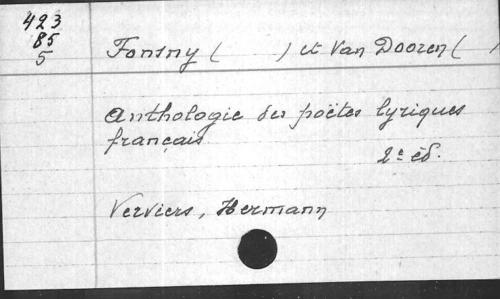 423
85
5
Fonsny ( ) et Van Dooren ( )
Anthologie des poëtes lyriques
français
2e éd.
Verviers, Hermann